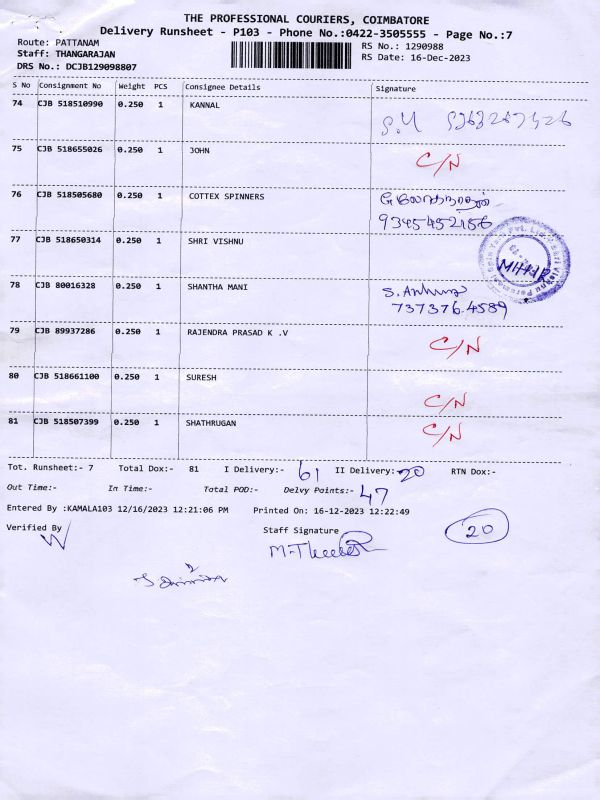 THE PROFESSIONAL COURIERS, COIMBATORE
Delivery Runsheet - P103 - Phone No.:0422-3505555 - Page No.:7
Route: PATTANAM
RS No.: 1290988
Staff: THANGARAJAN
RS Date: 16-Dec-2023
DRS No.: DCJB129098807
S No Consignment No Weight PCS Consignee Details Signature
74 CJB 518510990 0.250 1 KANNAL
75 CJB 518655026 0.250 1 JOHN C/N
76 CJB 518505680 0.250 1 COTTEX SPINNERS
9345452156
77 CJB 518650314 0.250 1 SHRI VISHNU
78 CJB 80016328 0.250 1 SHANTHA MANI
737376 4589
79 CJB 89937286 0.250 1 RAJENDRA PRASAD K .V C/N
80 CJB 518661100 0.250 1 SURESH C/N
81 CJB 518507399 0.250 1 SHATHRUGAN C/N
Tot. Runsheet:- 7 Total Dox:- 81 I Delivery:- 61 II Delivery:- 20 RTN Dox:-
Out Time:- In Time:- Total POD:- Delvy Points:- 47
Entered By :KAMALA103 12/16/2023 12:21:06 PM Printed On: 16-12-2023 12:22:49
Verified By Staff Signature 20